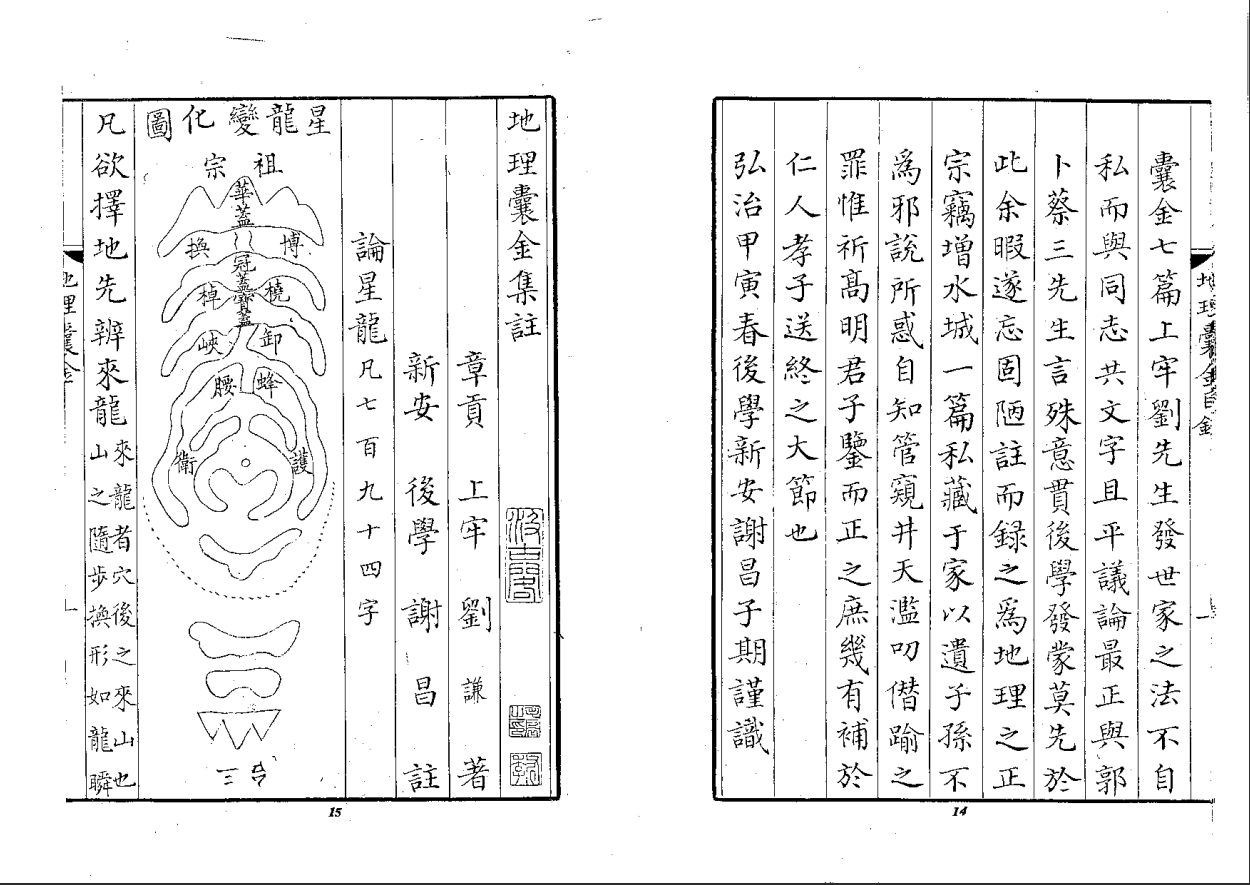 囊金七篇上牢劉先生發世家之法不自
私而與同志共文字且平議論最正與郭
卜蔡三先生言殊意貫後學發蒙莫先於
此余暇遂忘固陋註而録之爲地理之正
宗竊增水城一篇私藏于家以遺子孫不
爲邪說所惑自知管窺井天濫叨僭踰之
罪惟祈髙明君子鑒而正之庶幾有補於
仁人孝子送終之大節也
弘治甲寅春後學新安謝昌子期謹識
14
地理囊金集註
章貢上牢劉謙著
新安後學謝昌註
論星龍凡七百九十四字
星龍變化圖
祖宗
華蓋
博換
冠蓋寶蓋
橈棹
卸峽
蜂腰
護衛
三台
凡欲擇地先辨來龍來龍者穴後之來山也
山之隨步換形如龍瞬
地理囊金
一
15